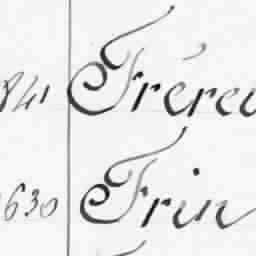 841 Frérei
630 Frin